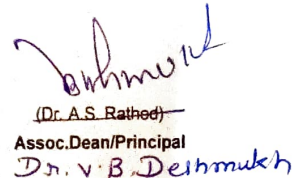 Deshmukh
(Dr. A.S. Rathod)
Assoc.Dean/Principal
Dr. V. B. Deshmukh